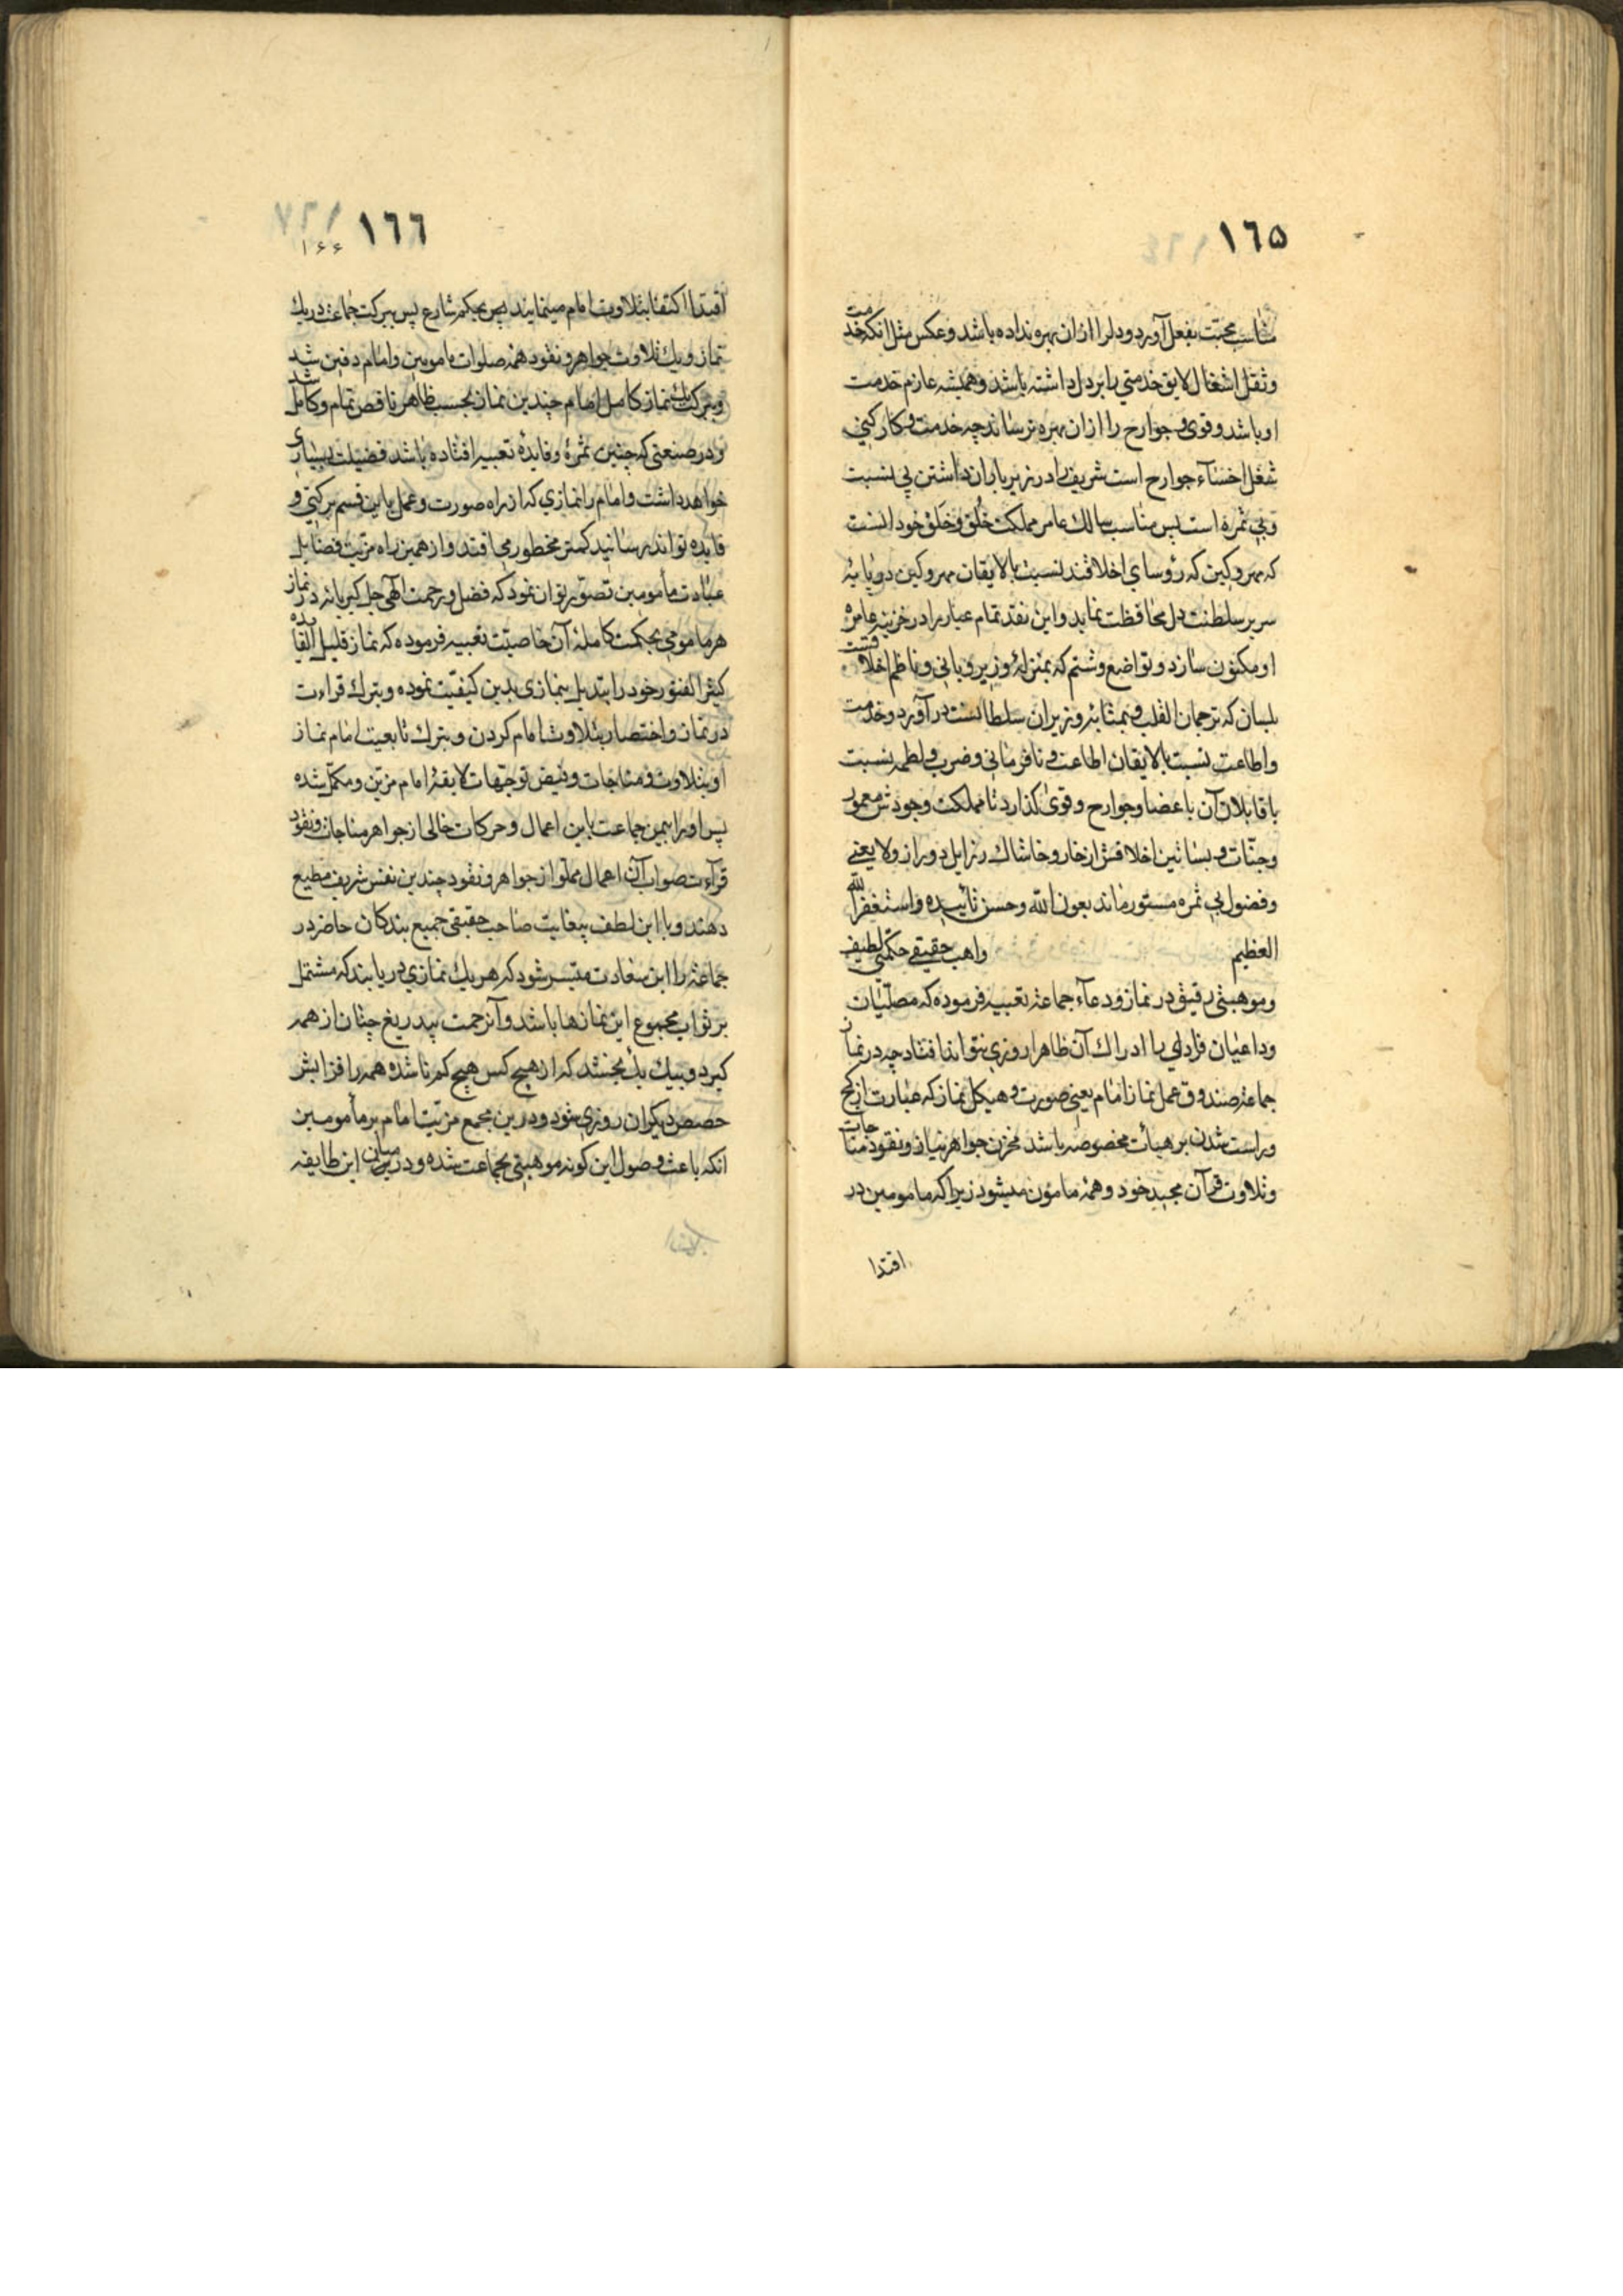 ١٦٥
مناسب محبّت بفعل آورد و دلرا ازان بهره نداده باشد و عکس مثل انکه خدمت
و ثقل اشغال لایق خدمتی را بر دل داشته باشد و همیشه عازم خدمت
او باشد و قوی و جوارح را ازان بهره نرساند چه خدمت و کارکنی
شغل اخسّآء جوارح است شریف را در زیر باران داشتن بی نسبت
و بی ثمره است پس مناسب سالک عامر مملکت خُلق و خَلق خود انست
که مهر و کین که رؤسای اخلاقند نسبت بالایقان مهر و کین در پایۀ
سریر سلطنت دل محافظت نماید و این نقد تمام عیار را در خزینه عامرۀ
او مکنون سازد و تواضع و شتم که بمنزلۀ وزیر و بانی و ناظم اخلاقست
بلسان که ترجمان القلب و بمثابۀ وزیران سلطانست در آورد و خدمت
و اطاعت نسبت بالایقان اطاعت و نافرمانی و ضرب و لطمه نسبت
با قابلان آن باعضا و جوارح و قوی گذارد تا مملکت وجودش معمور
و جنّات و بساتین اخلاقش از خار و خاشاک رزایل دور از ولایعنی
و فضول بی ثمره مستور ماند بعون الله و حسن تائیده و استغفر الله
العظیم واهب حقیقی حکمتی لطیف
و موهبتی رقیق در نماز و دعآء جماعة تعبیه فرموده که مصلّیان
و داعیان فرادی را ادراک آن ظاهرا روزی نتواند افتاد چه در نماز
جماعة صندوق عمل نماز امام یعنی صورت و هیکل نماز که عبارت از کج
و راست شدن بر هیأت مخصوصه باشد مخزن جواهر نیاز و نقود مناجات
و تلاوت قرآن مجید خود و همۀ مامون میشود زیرا که مامومین در
اقتدا
١٦٦
۱۶۶
اقتدا اکتفا بتلاوت امام مینمایند پس بحکم شارع پس ببرکت جماعت در یک
نماز و یک تلاوت جواهر و نقود همه صلوات مامومین و امام دفین شد
و ببرکت یک نماز کامل امام چندین نماز بحسب ظاهر ناقص تمام و کامل شد
و در صنعتی که چنین ثمرۀ و فایدۀ تعبیه افتاده باشد فضیلت بسیاری
خواهد داشت و امام را نمازی که از راه صورت و عمل باین قسم برکتی و
فایده تواند رسانید کمتر مخطور می افتد و از همین راه مزیّت فضایل
عبادت مأمومین تصوّر توان نمود که فضل و رحمت الهی جل کبریائه در نماز
هر مامومی بحکمت کاملۀ آن خاصیّت تعبیه فرموده که نماز قلیل الفایده
کثیر الفتور خود را تبدیل بنمازی بدین کیفیّت نموده و بترک قراءت
در نماز و اختصار بتلاوت امام کردن و بترک تابعیت امام نماز
او بتلاوت و مناجات و فیض توجّهات لایقۀ امام مزیّن و مکمّل شده
پس او را بیمن جماعت باین اعمال و حرکات خالی از جواهر مناجات و نقود
قرآءت صواب آن اعمال مملوّ از جواهر و نقود چندین نفس شریف مطیع
دهند و با این لطف بیغایت صاحب حقیقی جمیع بندکان حاضر در
جماعة را این سعادت متیسر شود که هر یک نمازی دریابند که مشتمل
بر ثواب مجموع این نمازها باشد و آنرحمت بیدریغ چنان از همه
کیرد و بیک یک بخشد که از هیچ کس هیچ کم ناشده همه را فزایش
حصص دیکران روزی شود و درین مجمع مزیّت امام بر مأمومین
انکه باعث وصول این کونه موهبتی بجماعت شده و درین میان این طایفه